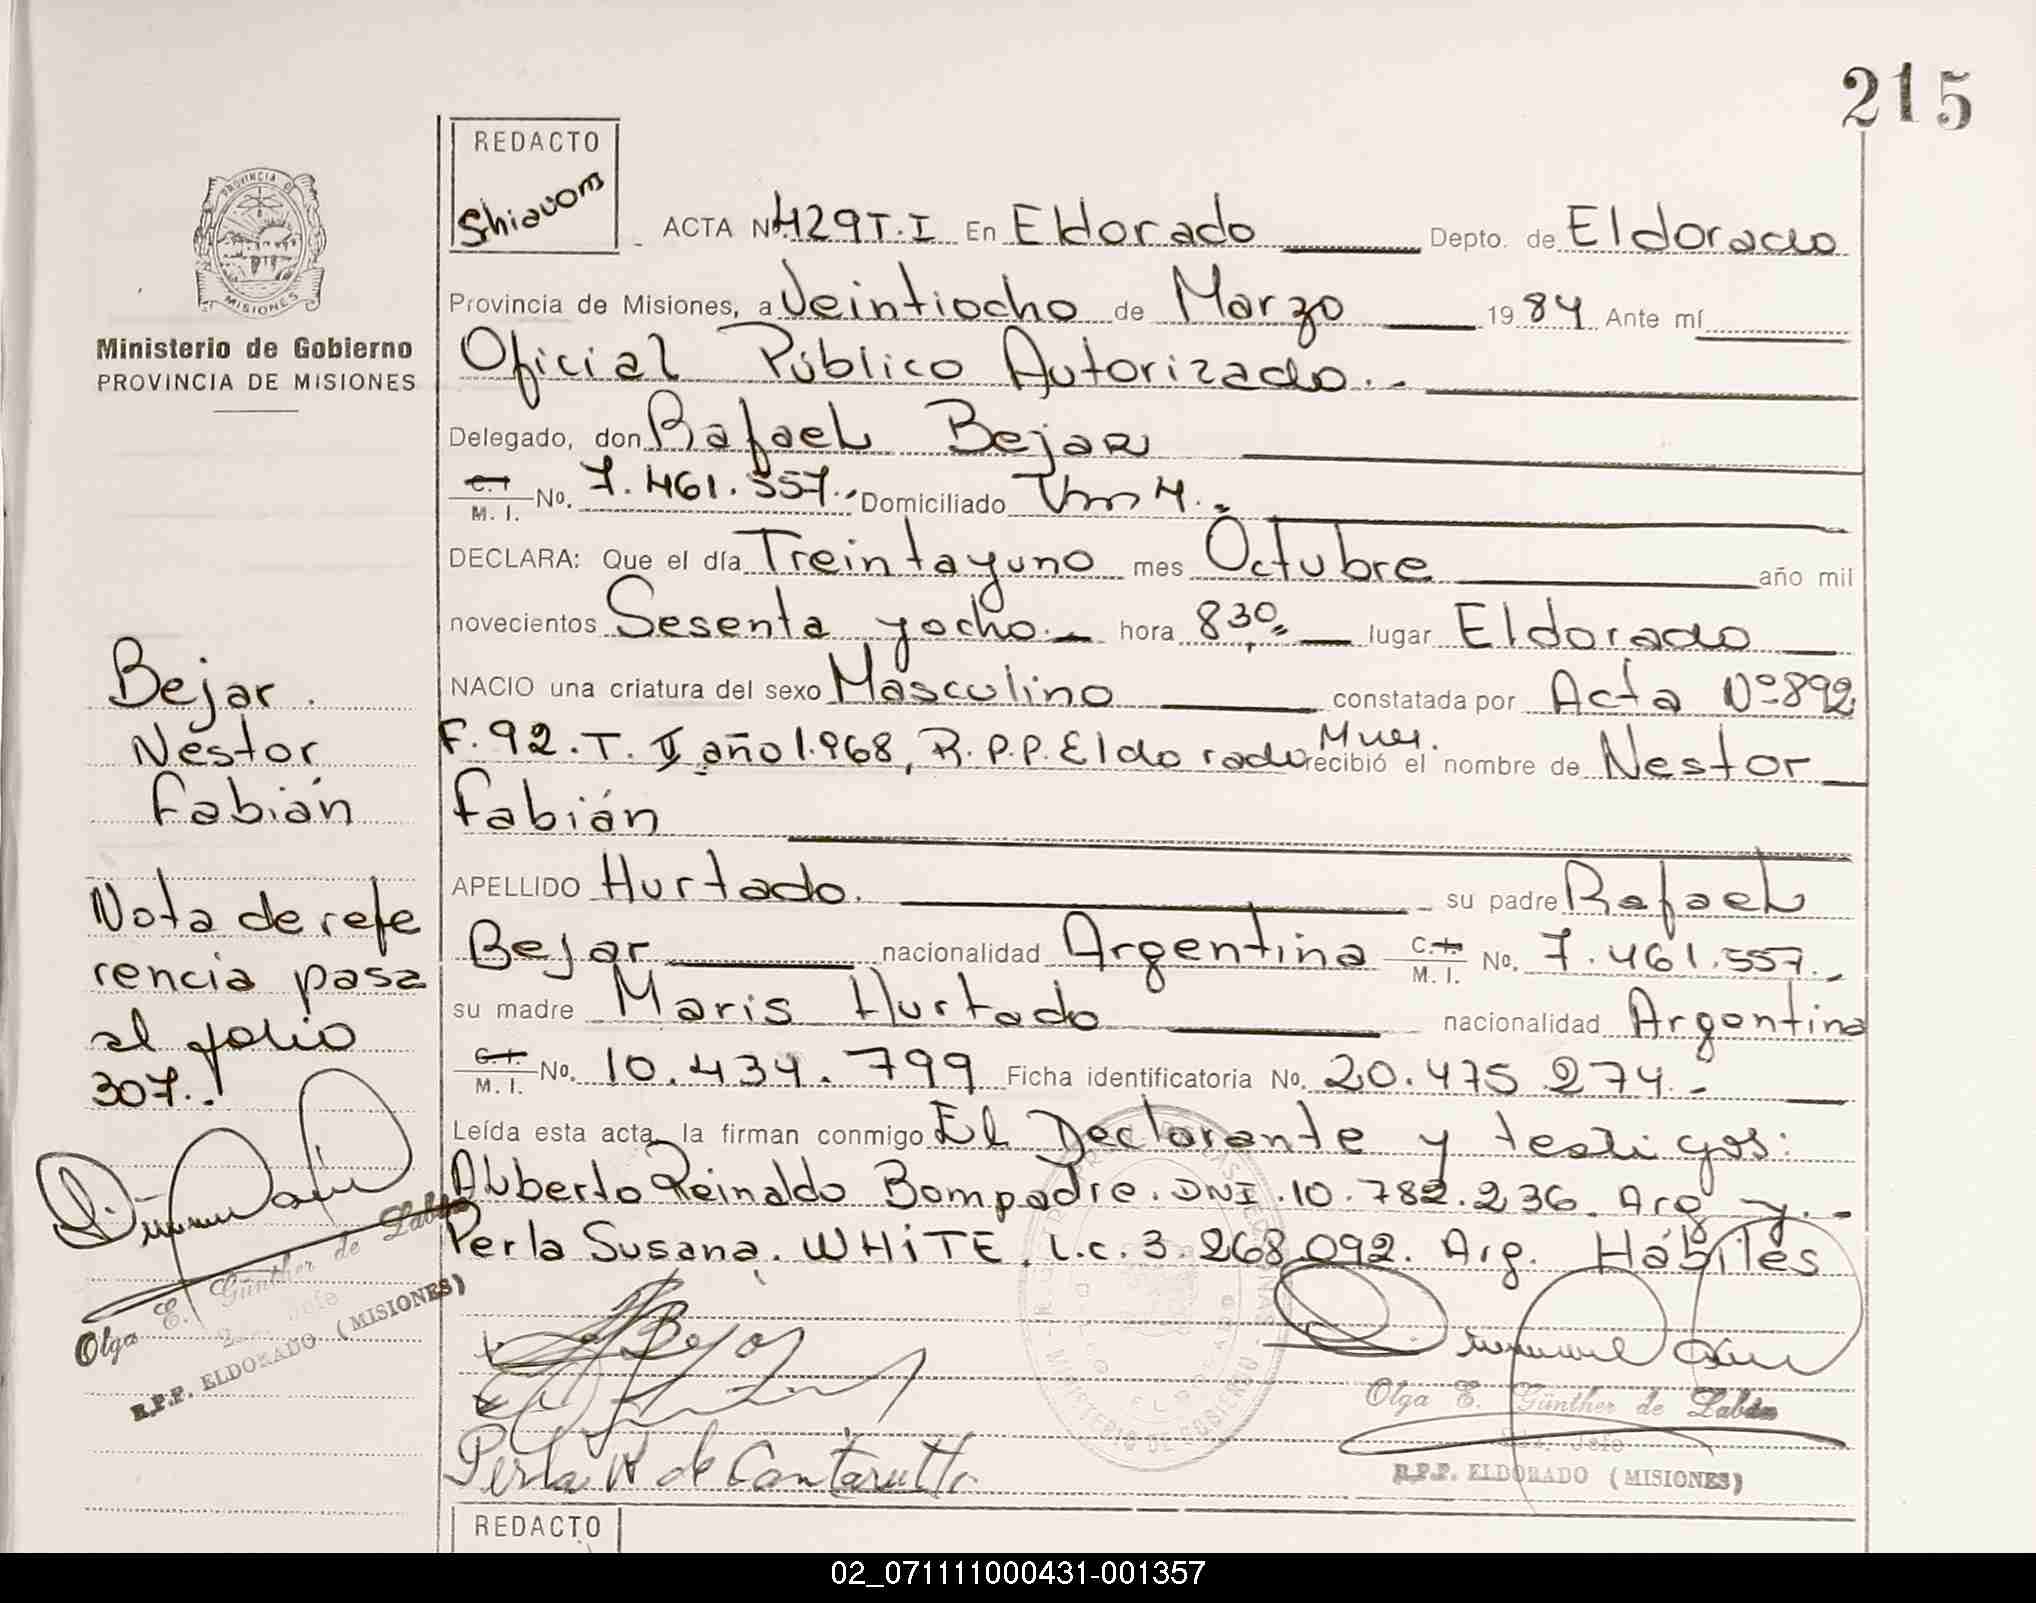 215
REDACTO
Shiavoni
ACTA Nº 429 T. I En Eldorado Depto. de Eldorado
PROVINCIA DE
MISIONES
Provincia de Misiones, a Veintiocho de Marzo 1984 Ante mí
Ministerio de Gobierno
PROVINCIA DE MISIONES
Oficial Público Autorizado..
Delegado, don Rafael Bejar
C. I. M. I. No. 7.461.557.. Domiciliado Km 4..
DECLARA: Que el día Treintayuno mes Octubre año mil
novecientos Sesenta yocho. hora 8 30 lugar Eldorado
NACIO una criatura del sexo Masculino constatada por Acta Nº 892
F. 92. T. II año 1.968, R.P.P. Eldorado recibió el nombre de Nestor
Fabián
APELLIDO Hurtado. su padre Rafael
Bejar nacionalidad Argentina C.I. M. I. No. 7.461.557.
su madre Maris Hurtado nacionalidad Argentina
C. I. M. I. No. 10.434.799 Ficha identificatoria No. 20.475 274.-
Leída esta acta, la firman conmigo El Declarante y testigos:
Alberto Reinaldo Bompadre. DNI. 10.782.236. Arg y.-
Perla Susana. WHiTE. L.c. 3.268.092. Arg. Hábiles
Bejar.
Nestor
Fabián
Nota de refe
rencia pasa
al folio
307..
Olga E. Günther de Labán
R.P.P. ELDORADO (MISIONES)
Bejar
Perla W de Cantarutti
MINISTERIO DE GOBIERNO
ELDORADO
Olga E. Günther de Labán
2da. Jefe
R.P.P. ELDORADO (MISIONES)
REDACTO
02_071111000431-001357